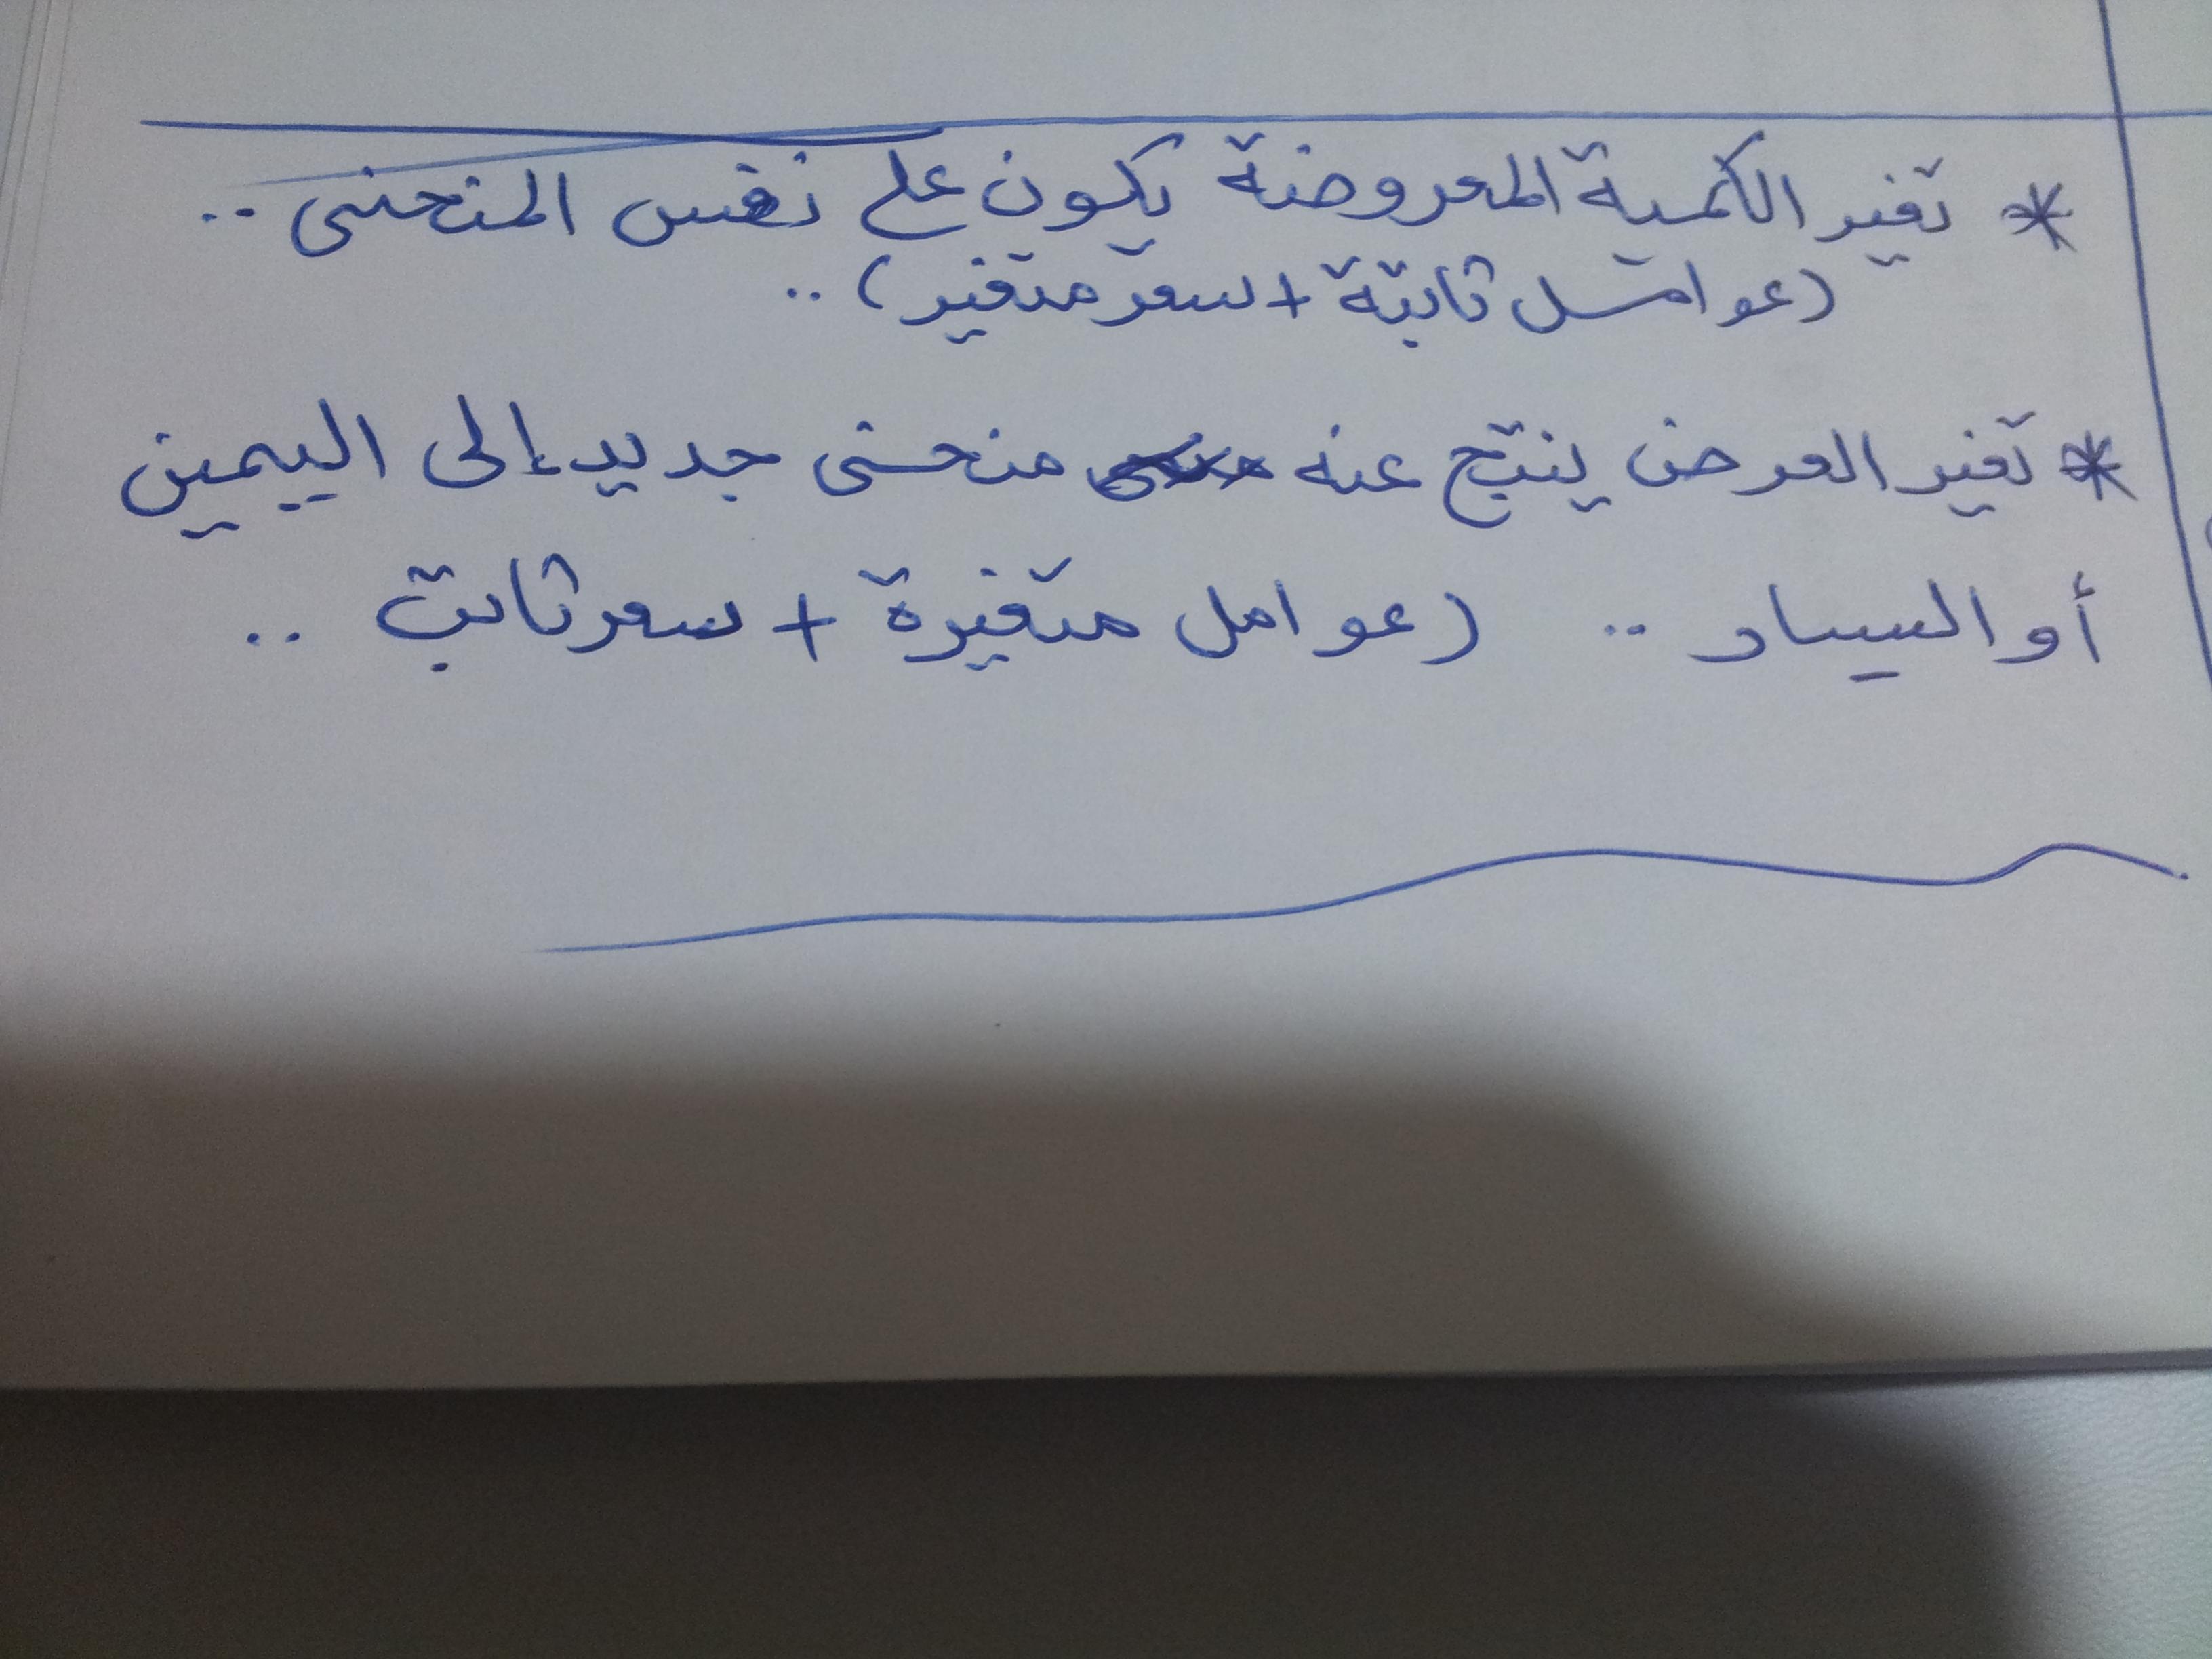 * تغير الكمية المعروضة يكون على نفس المنحنى ..
(عوامل ثابتة + سعر متغير) ..
* تغير العرض ينتج عنه منحنى جديد إلى اليمين
أو اليسار .. (عوامل متغيرة + سعر ثابت ..